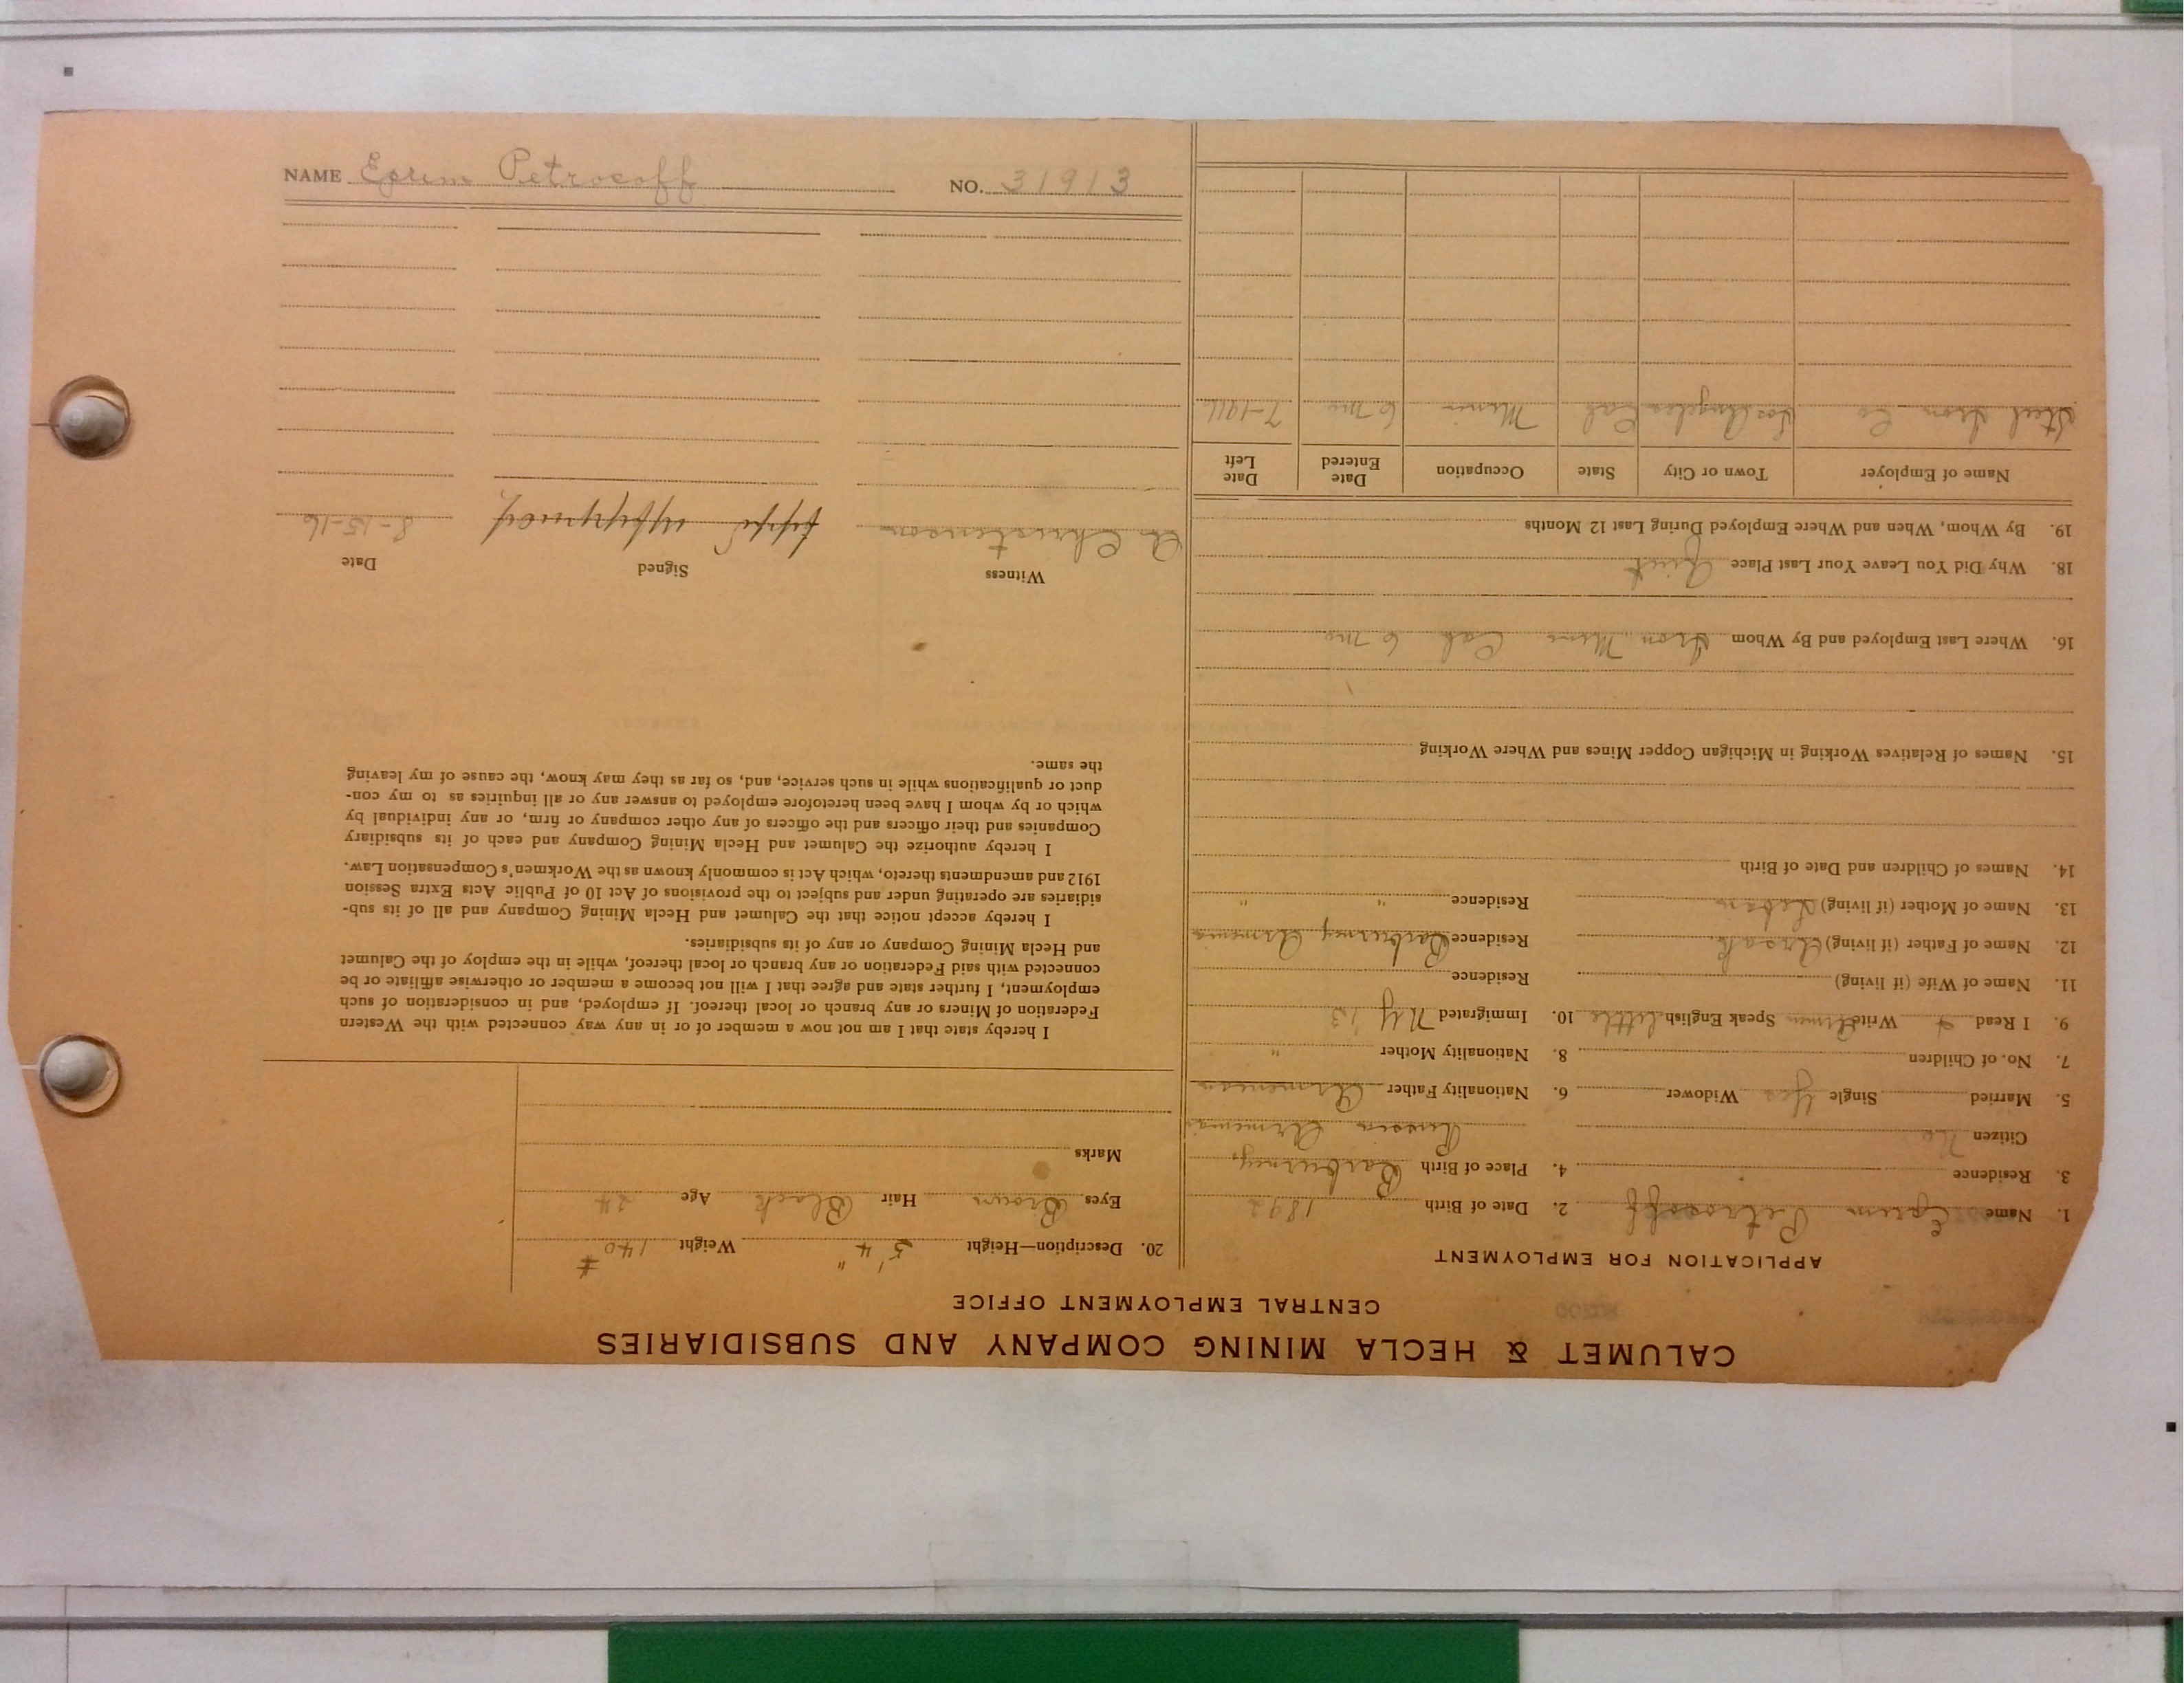 NAME Eprem Petrosoff NO. 31913
CALUMET & HECLA MINING COMPANY AND SUBSIDIARIES
CENTRAL EMPLOYMENT OFFICE
APPLICATION FOR EMPLOYMENT
1. Name Eprem Petrosoff 2. Date of Birth 1892
3. Residence 4. Place of Birth
Citizen No Russia Armenia
5. Married Single Yes Widower 6. Nationality Father Armenian
7. No. of Children 8. Nationality Mother "
9. I Read Write Speak English little 10. Immigrated NY
11. Name of Wife (if living) Residence
12. Name of Father (if living) Residence Armenia
13. Name of Mother (if living) Residence " "
14. Names of Children and Date of Birth
15. Names of Relatives Working in Michigan Copper Mines and Where Working
16. Where Last Employed and By Whom Iron Mine Cal 6 mo
18. Why Did You Leave Your Last Place Quit
19. By Whom, When and Where Employed During Last 12 Months
Name of Employer Town or City State Occupation Date Entered Date Left
Steel Iron Co Los Angeles Cal Miner 6 mo
20. Description—Height 5' 4" Weight 140 #
Eyes Brown Hair Black Age 24
Marks
I hereby state that I am not now a member of or in any way connected with the Western
Federation of Miners or any branch or local thereof. If employed, and in consideration of such
employment, I further state and agree that I will not become a member or otherwise affiliate or be
connected with said Federation or any branch or local thereof, while in the employ of the Calumet
and Hecla Mining Company or any of its subsidiaries.
I hereby accept notice that the Calumet and Hecla Mining Company and all of its sub-
sidiaries are operating under and subject to the provisions of Act 10 of Public Acts Extra Session
1912 and amendments thereto, which Act is commonly known as the Workmen's Compensation Law.
I hereby authorize the Calumet and Hecla Mining Company and each of its subsidiary
Companies and their officers and the officers of any other company or firm, or any individual by
which or by whom I have been heretofore employed to answer any or all inquiries as to my con-
duct or qualifications while in such service, and, so far as they may know, the cause of my leaving
the same.
Witness Signed Date
Christenson 8-15-16